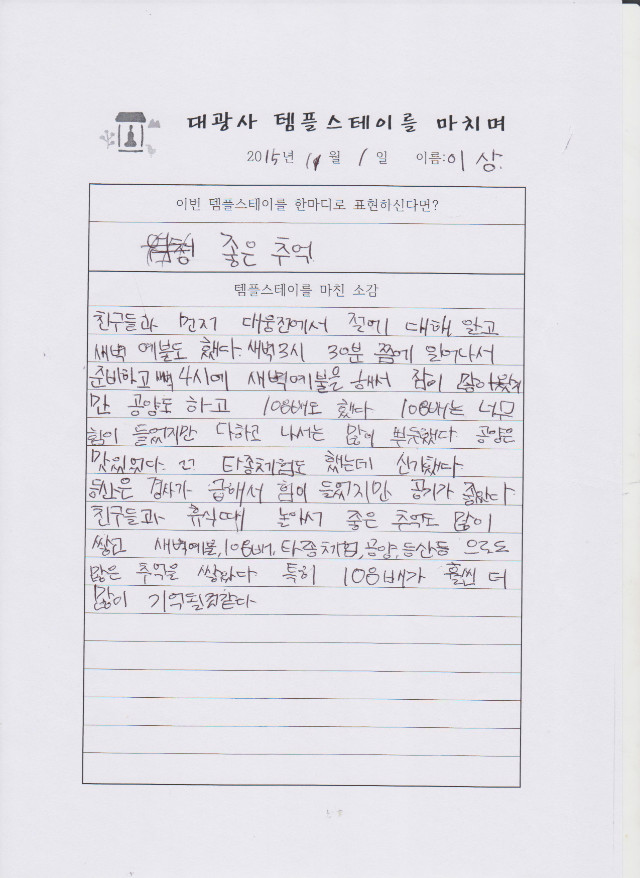 대광사 템플스테이를 마치며
2015년 11월 1일 이름:이상
이번 템플스테이를 한마디로 표현하신다면?
좋은 추억
템플스테이를 마친 소감
친구들과 먼저 대웅전에서 절에 대해 알고
새벽 예불도 했다. 새벽3시 30분 쯤에 일어나서
준비하고 4시에 새벽예불을 해서 잠이 많이왔지
만 공양도 하고 108배도 했다 108배는 너무
힘이 들었지만 다하고 나서는 많이 뿌듯했다 공양은
맛있었다. 타종체험도 했는데 신기했다
등산은 경사가 급해서 힘이 들었지만 공기가 좋았다
친구들과 휴식때 놀아서 좋은 추억도 많이
쌓고 새벽예불,108배,타종체험,공양,등산등 으로도
많은 추억을 쌓았다 특히 108배가 훨씬 더
많이 기억될것같다